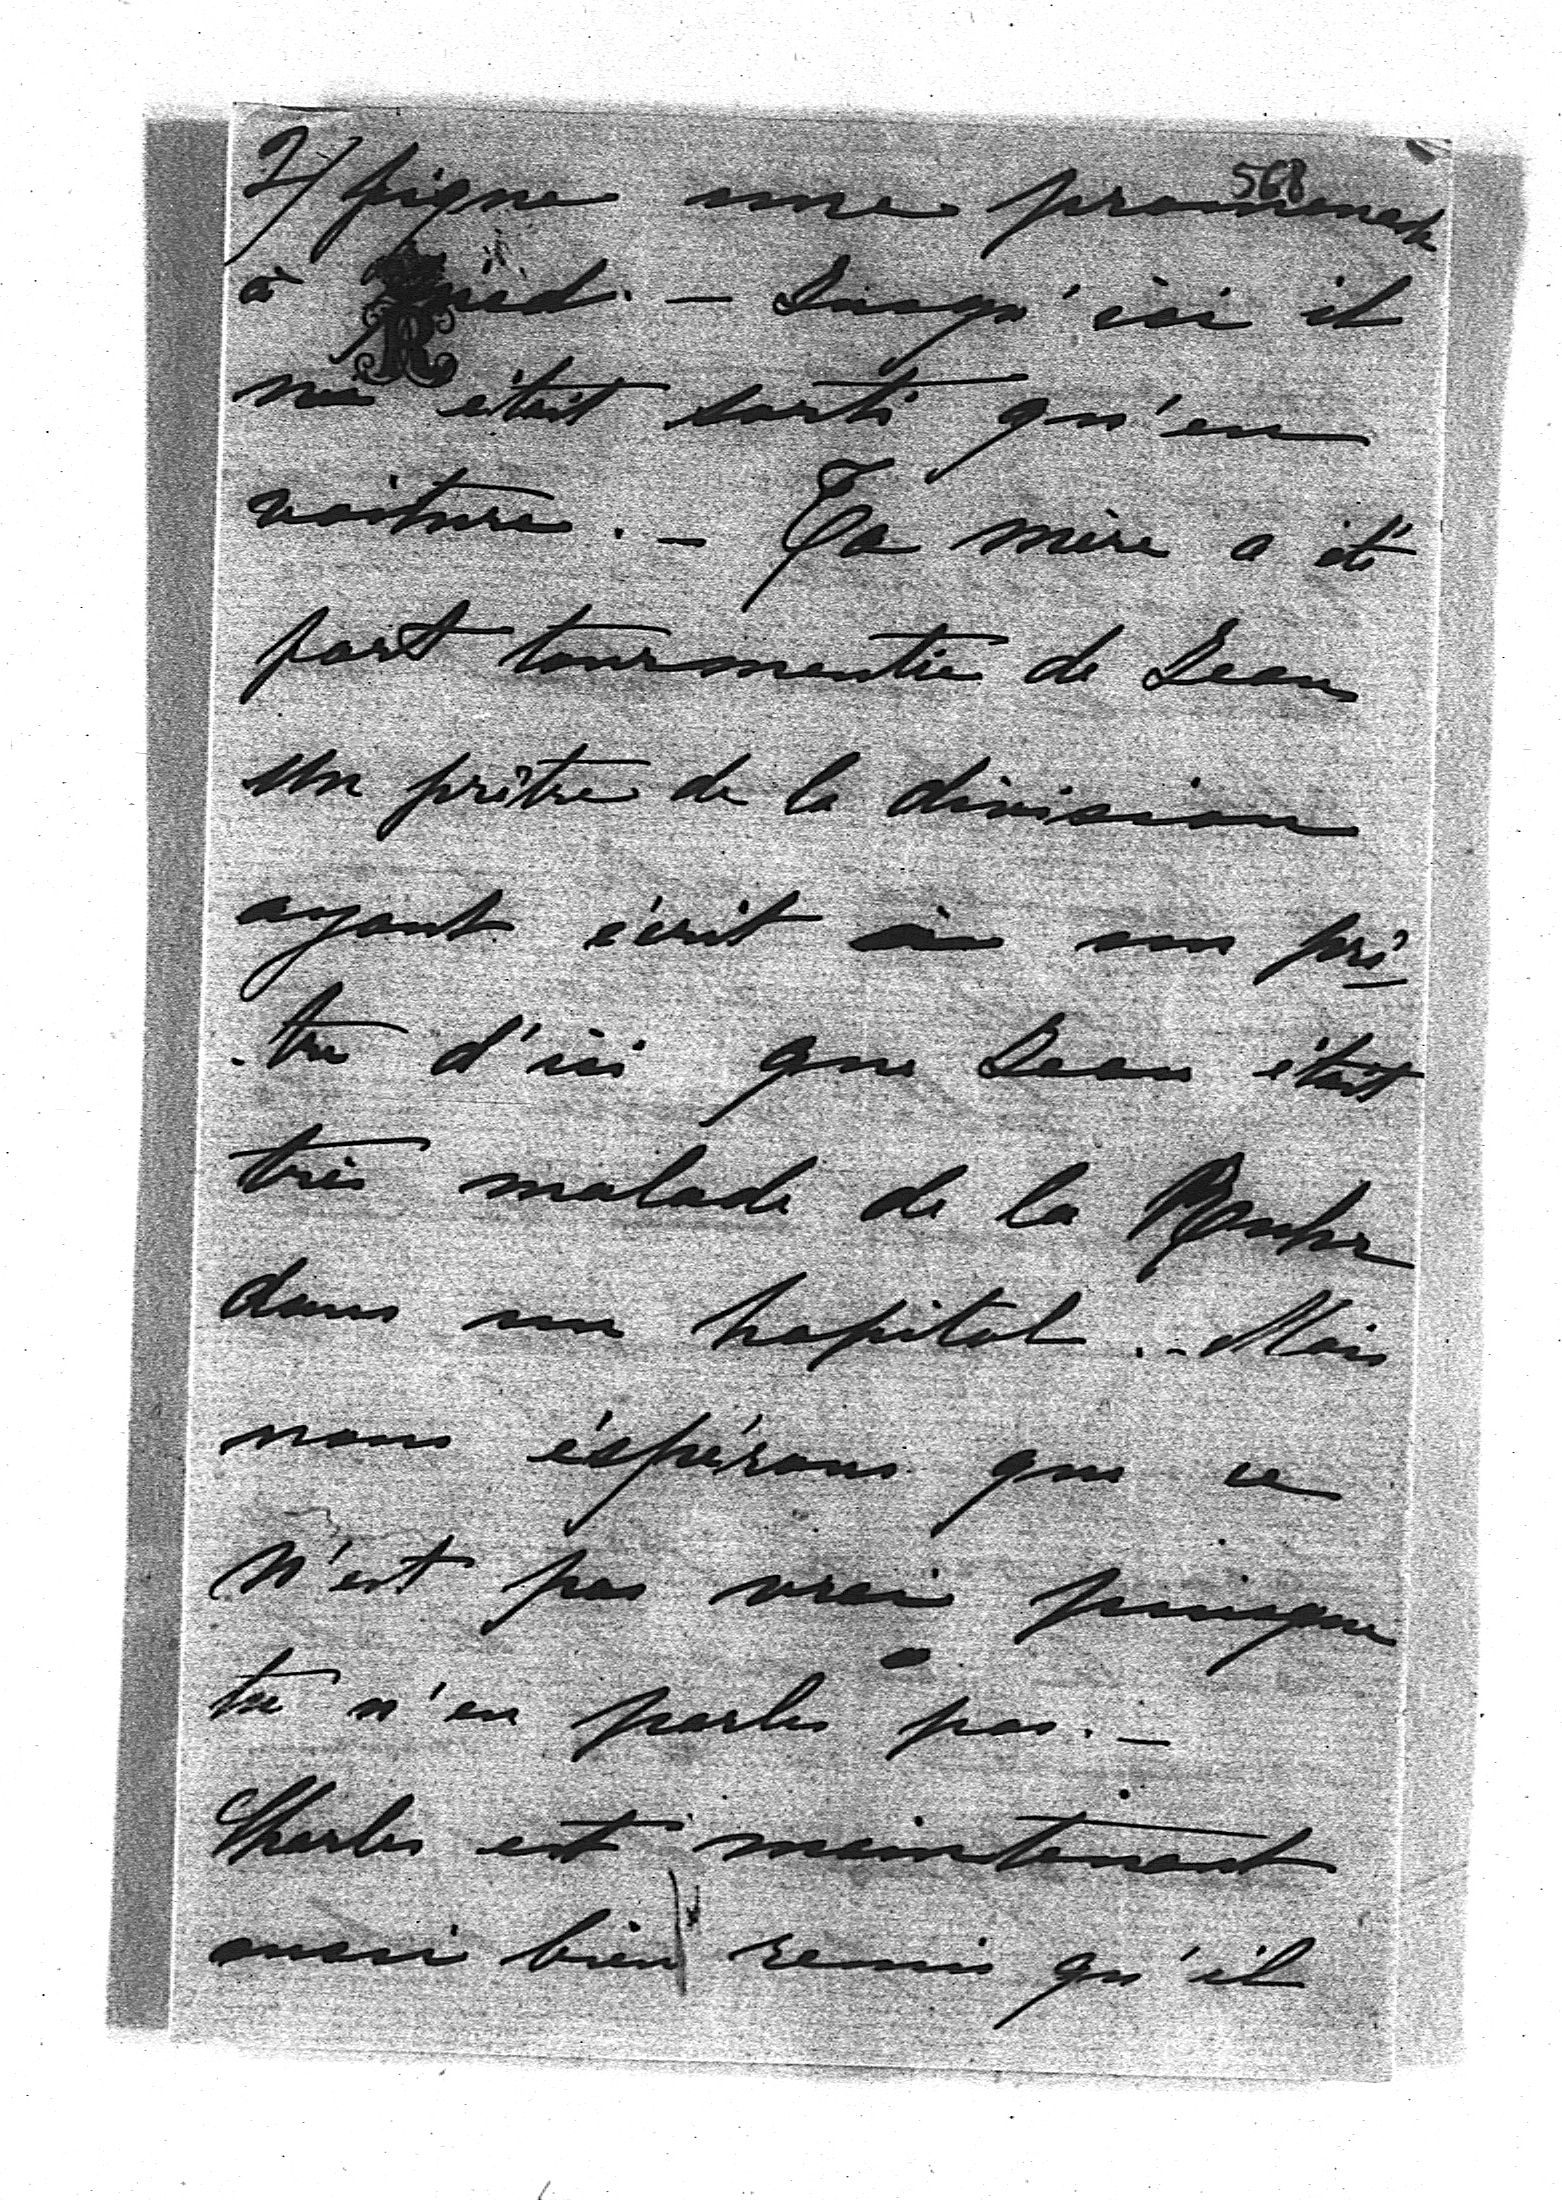 2/ pagne une promenade
568
à pied. — Jusqu'ici il
n'était sorti qu'en
voiture. — Ta mère a été
fort tourmentée de Jean
un prêtre de la division
ayant écrit à un prê-
-tre d'ici que Jean était
très malade de la Ruhr
dans un hopital. — Mais
nous éspérons que ce
n'est pas vrai puisque
tu n'en parles pas. —
Charles est maintenant
aussi bien remis qu'il